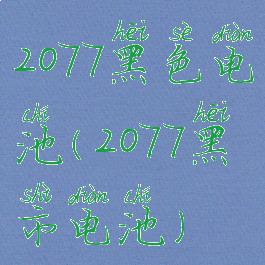 hēi sè diàn
2077黑色电
chí hēi
池(2077黑
shì diàn chí
市电池)